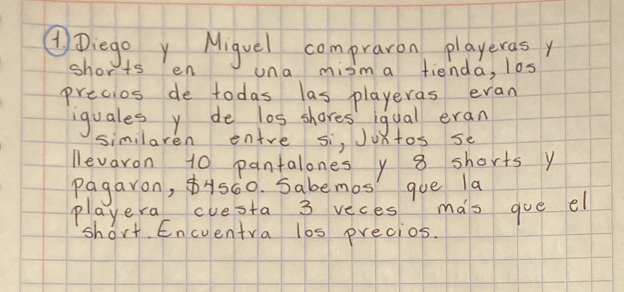 1. Diego y Miguel compraron playeras y
shorts en una misma tienda, los
precios de todas las playeras eran
iguales y de los shores igual eran
similaren entre si, Juxtos se
llevaron 10 pantalones y 8 shorts y
pagaron, $4560. Sabemos que la
playera cuesta 3 veces más que el
short. Encuentra los precios.